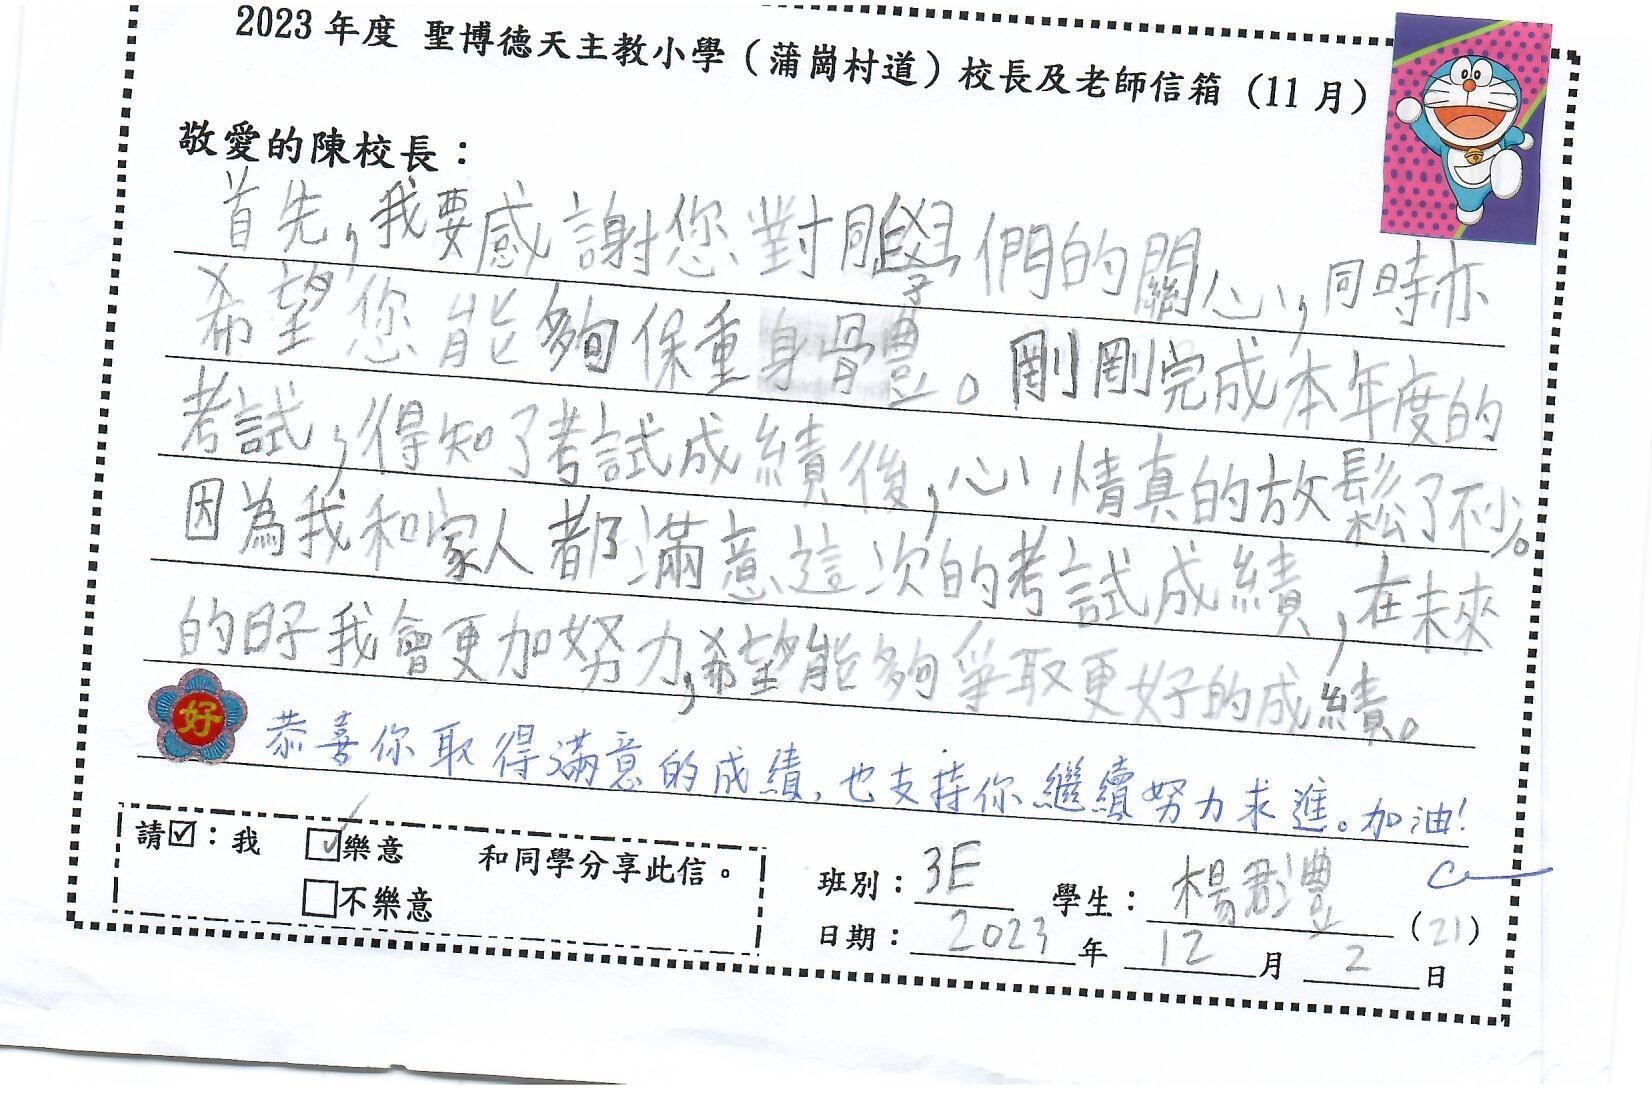 2023 年度 聖博德天主教小學（蒲崗村道）校長及老師信箱（11 月）
敬愛的陳校長：
首先，我要感謝您對同學們的關心，同時亦
希望您能夠保重身體。剛剛完成本年度的
考試，得知了考試成績後，心情真的放鬆了不少。
因為我和家人都滿意這次的考試成績，在未來
的日子我會更加努力，希望能夠爭取更好的成績。
好
恭喜你取得滿意的成績，也支持你繼續努力求進。加油！
請☑：我 ☑樂意 和同學分享此信。
□不樂意
班別：3E 學生：楊澧 (21)
日期：2023 年 12 月 2 日